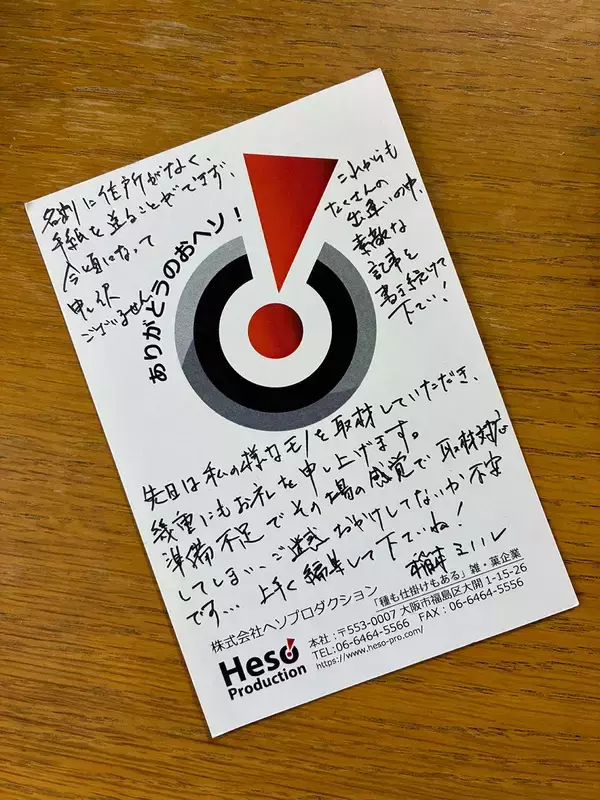 名刺に住所がなく、
手紙を送ることができず、
今頃になって
申し訳
ございません
これからも
たくさんの
出逢いの中、
素敵な
記事を
書き続けて
下さい!
ありがとうのおヘソ!
先日は私の様なモノを取材していただき、
幾重にもお礼を申し上げます。
準備不足でその場の感覚で取材対応
してしまい、ご迷惑おかけしてないか不安
です… 上手く編集して下さいね!
稲本ミノル
株式会社ヘソプロダクション 「種も仕掛けもある」雑・菓企業
Heso Production
本社:〒553-0007 大阪市福島区大開 1-15-26
TEL:06-6464-5566 FAX:06-6464-5556
https://www.heso-pro.com/